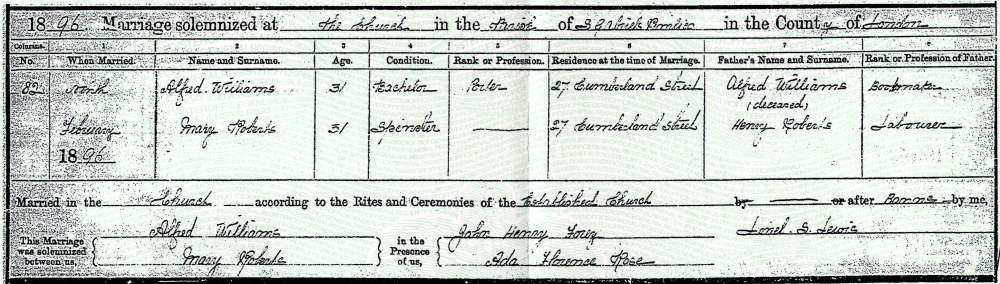 1896 Marriage solemnized at The Church in the Parish of S. Gabriel Pimlico in the County of London
Columns. 1 2 3 4 5 6 7 8
No. When Married. Name and Surname. Age. Condition. Rank or Profession. Residence at the time of Marriage. Father's Name and Surname. Rank or Profession of Father.
82 Alfred Williams 31 Bachelor Porter 27 Cumberland Street Alfred Williams Bookmaker
(deceased)
February Mary Roberts 31 Spinster 27 Cumberland Street Henry Roberts Labourer
1896
Married in the Church according to the Rites and Ceremonies of the Established Church by or after Banns by me,
Alfred Williams John Henry Lionel S. Lewis
This Marriage was solemnized between us, in the Presence of us,
Mary Roberts Ada Florence Rose